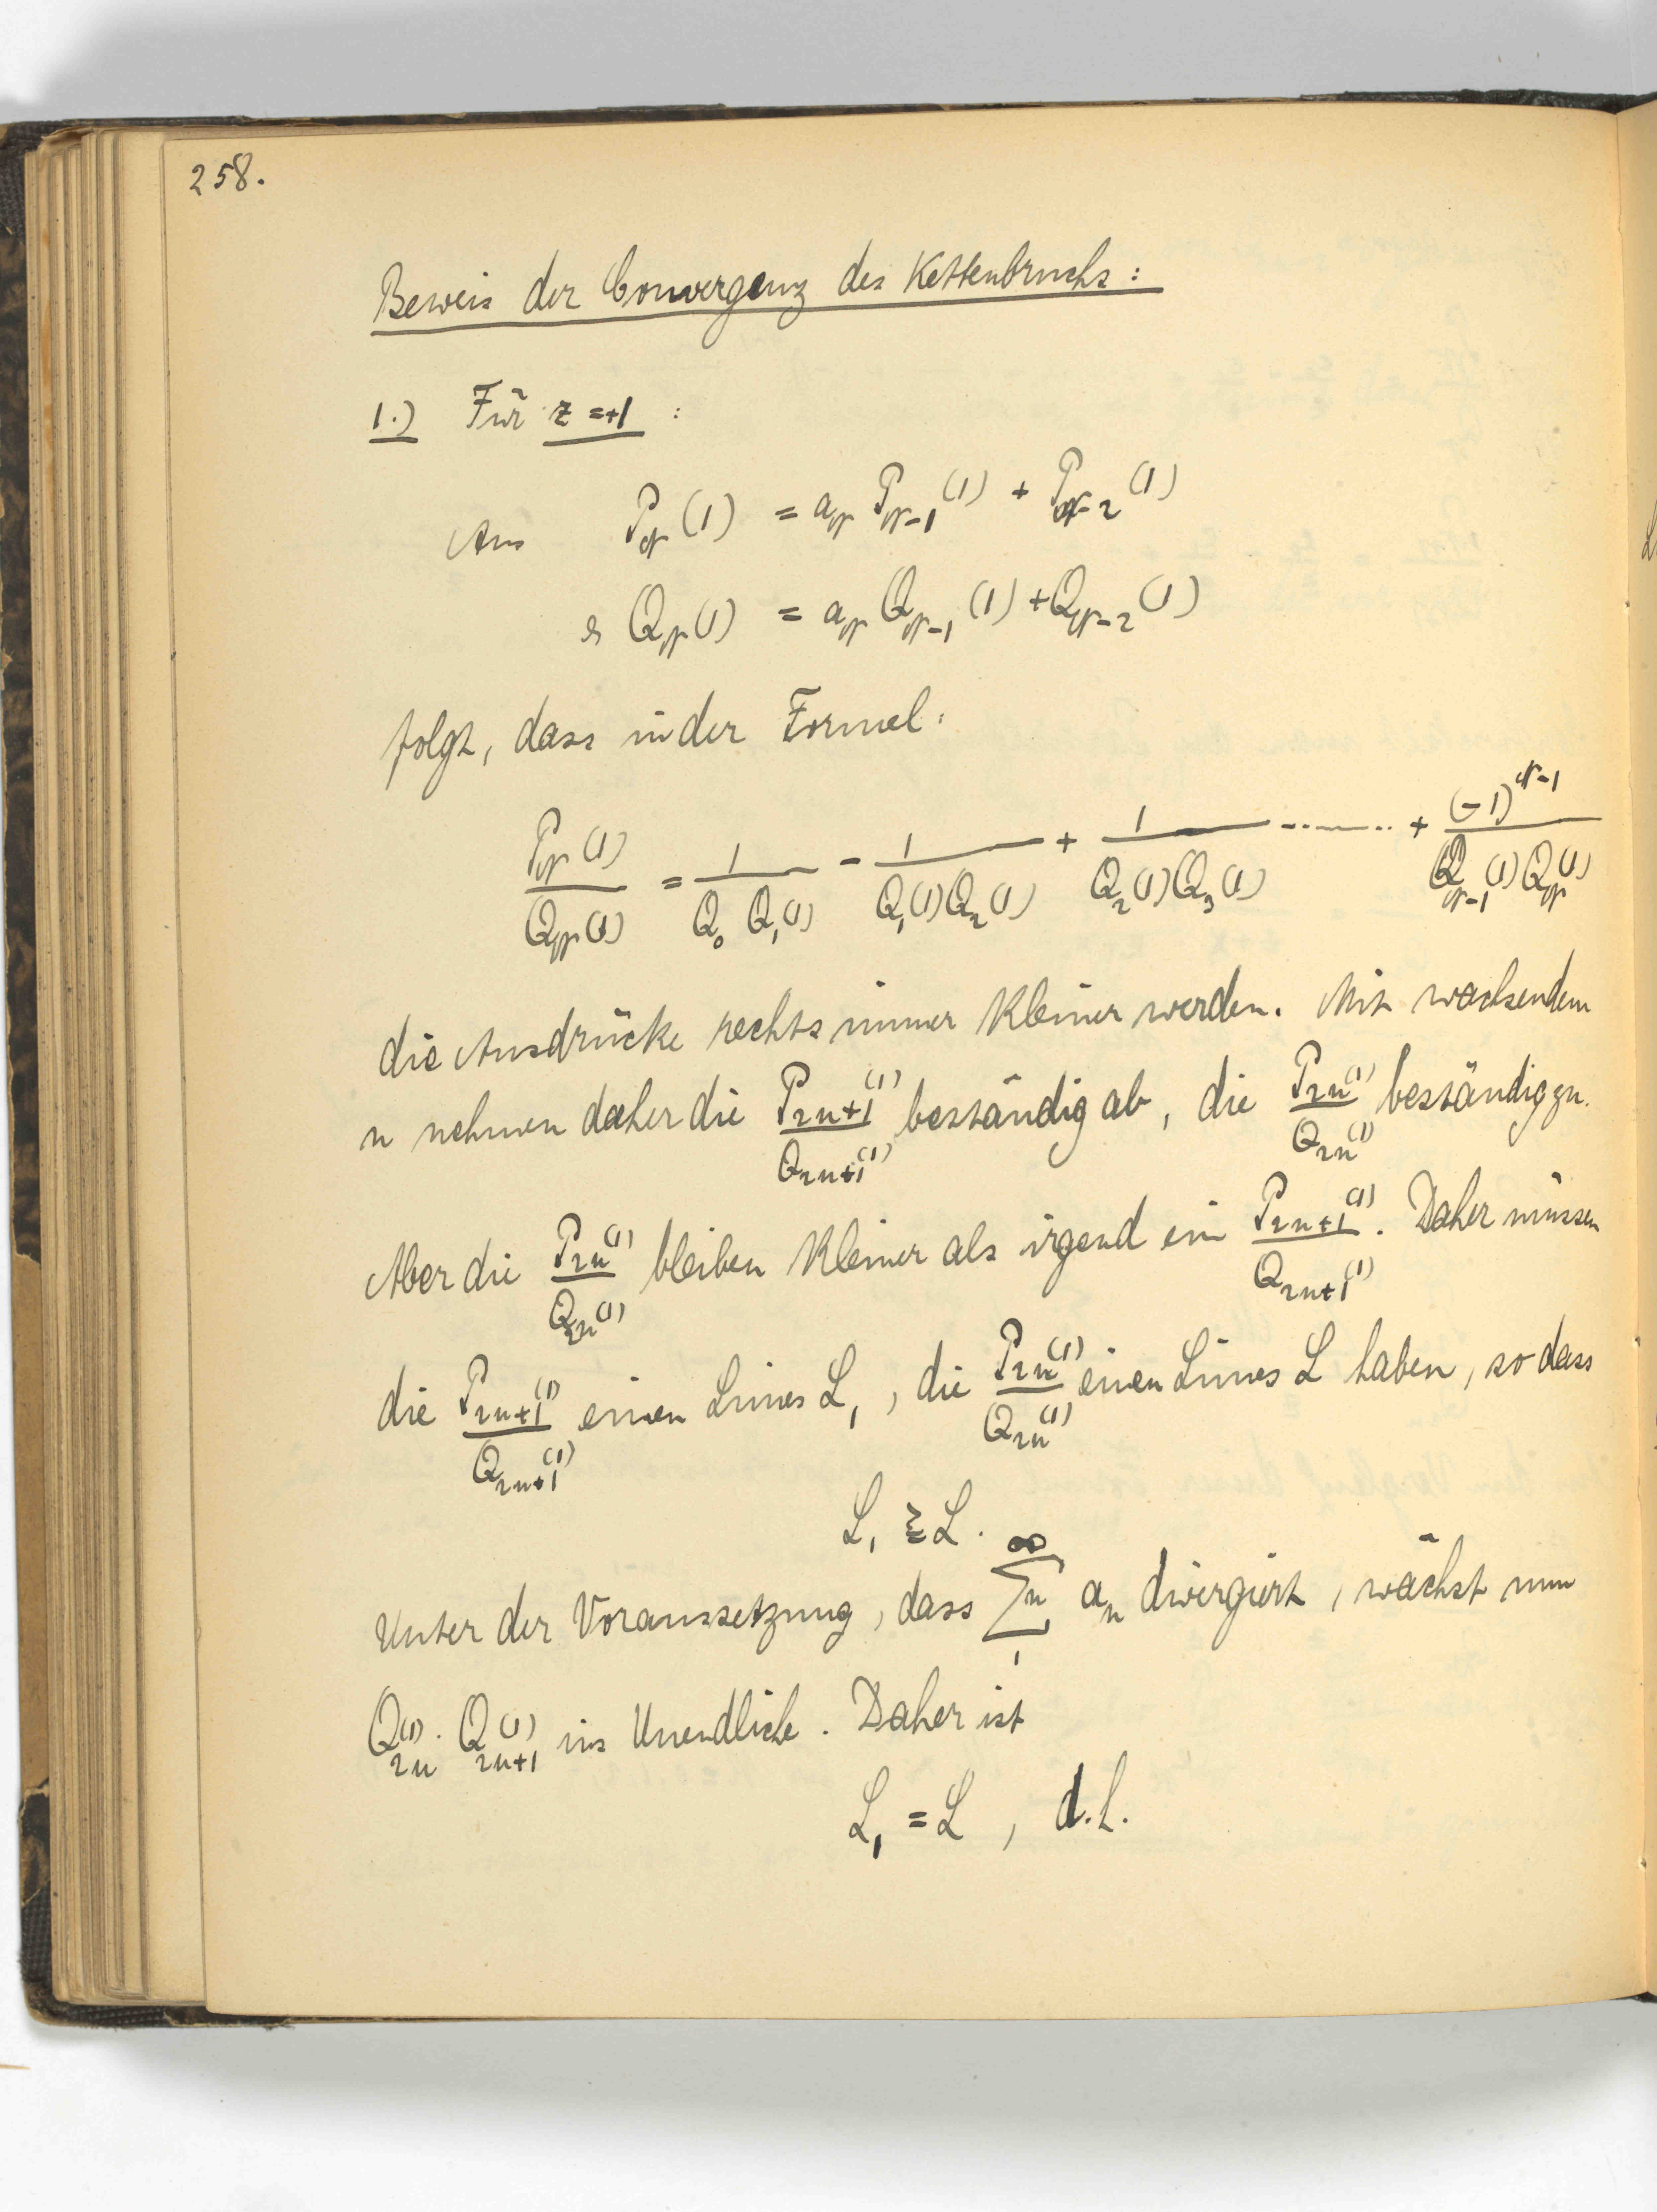 258.
Beweis der Convergenz des Kettenbruchs:
1.) Für z = +1 :
Aus P_ν(1) = a_ν P_ν-1(1) + P_ν-2(1)
& Q_ν(1) = a_ν Q_ν-1(1) + Q_ν-2(1)
folgt, dass in der Formel:
P_ν(1)/Q_ν(1) = 1/(Q_0 Q_1(1)) - 1/(Q_1(1) Q_2(1)) + 1/(Q_2(1) Q_3(1)) -........ + (-1)^(ν-1)/(Q_ν-1(1) Q_ν(1))
die Ausdrücke rechts immer kleiner werden. Mit wachsendem
n nehmen daher die P_2n+1(1)/Q_2n+1(1) beständig ab, die P_2n(1)/Q_2n(1) beständig zu.
Aber die P_2n(1)/Q_2n(1) bleiben kleiner als irgend ein P_2n+1(1)/Q_2n+1(1). Daher müssen
die P_2n+1(1)/Q_2n+1(1) einen Limes L_1, die P_2n(1)/Q_2n(1) einen Limes L haben, so dass
L_1 ≧ L.
Unter der Voraussetzung, dass ∑_1^∞ n a_n divergiert, wächst nun
Q_2n(1) · Q_2n+1(1) ins Unendliche. Daher ist
L_1 = L, d.h.